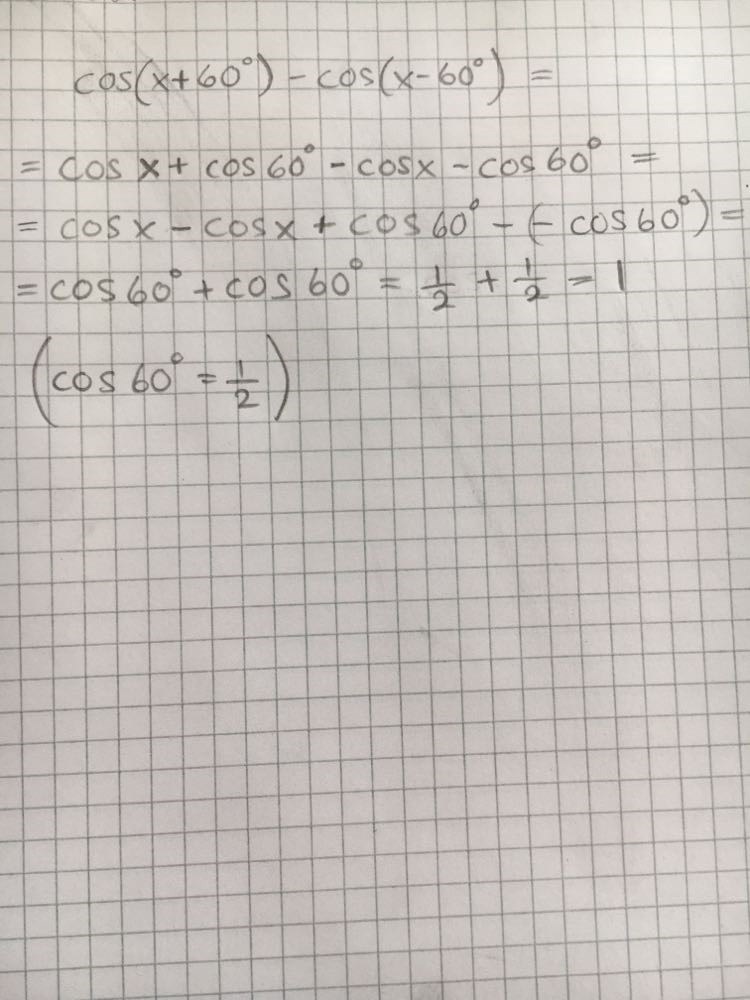 cos(x+60°) - cos(x-60°) =
= cos x + cos 60° - cos x - cos 60° =
= cos x - cos x + cos 60° - (- cos 60°) =
= cos 60° + cos 60° = 1/2 + 1/2 = 1
(cos 60° = 1/2)